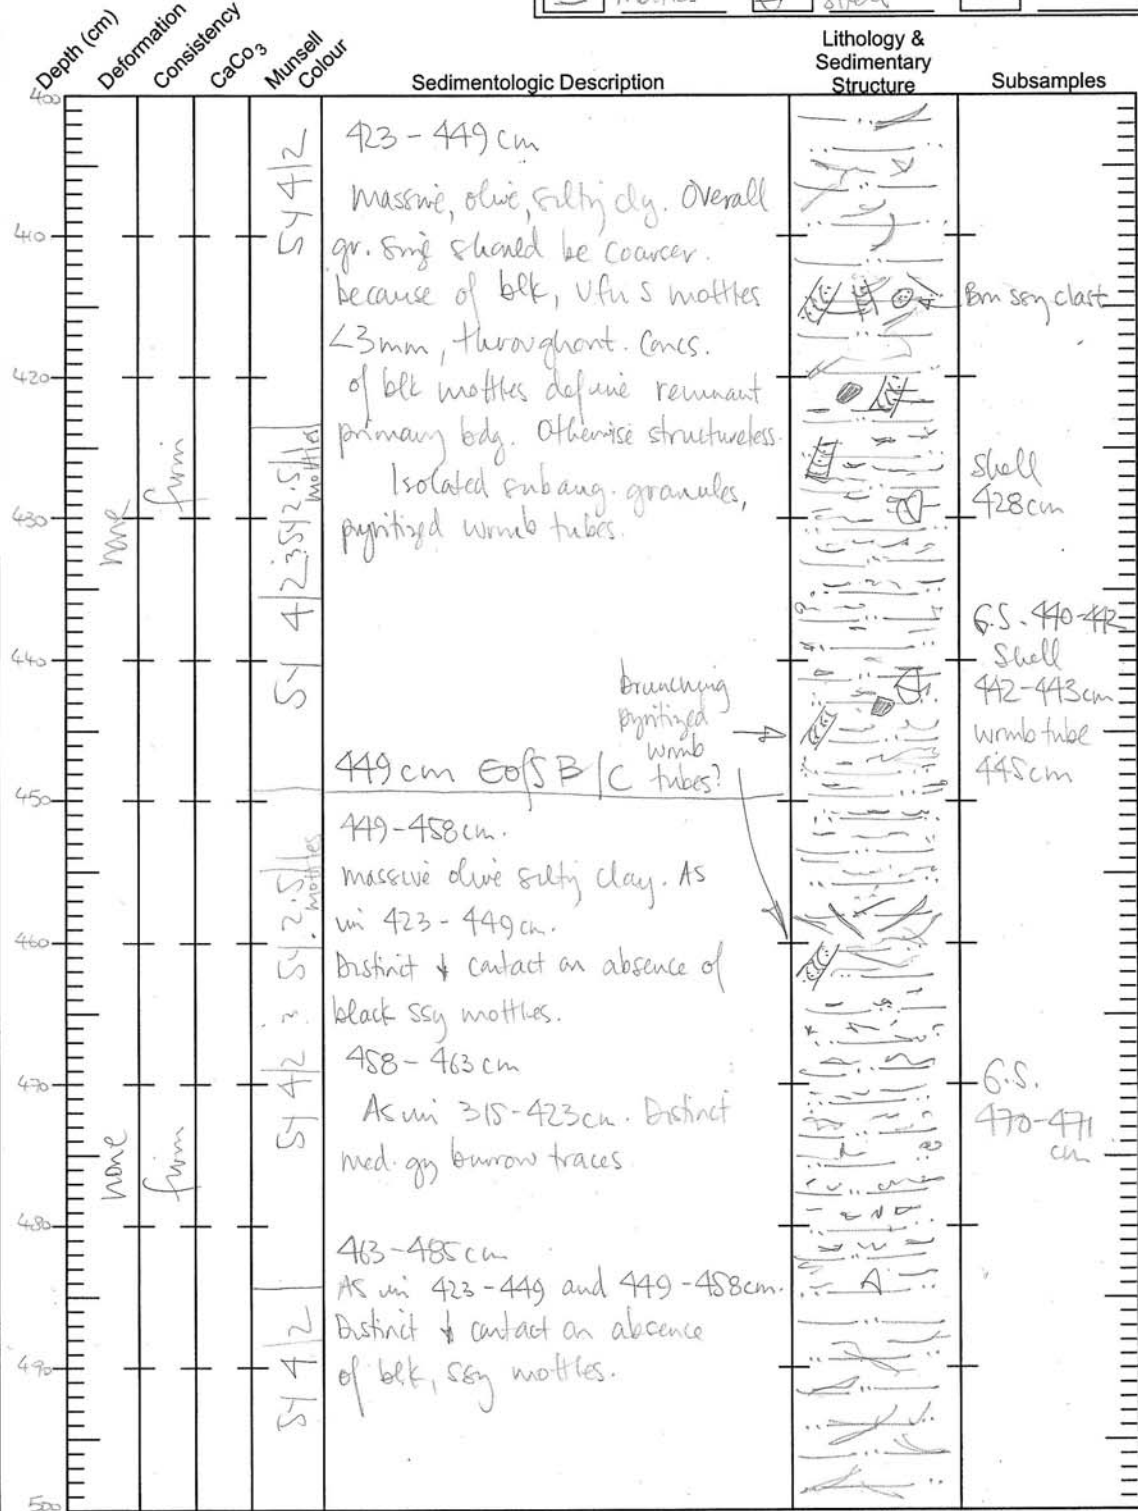 mottles
shell
Depth (cm)
Deformation
Consistency
CaCo3
Munsell
Colour
Sedimentologic Description
Lithology &
Sedimentary
Structure
Subsamples
400
410
420
430
440
450
460
470
480
490
500
none
firm
none
firm
5Y 4/2
5Y 4/2 & 5Y 2.5/1
mottles
5Y 4/2 & 5Y 2.5/1
mottles
5Y 4/2
423-449 cm
Massive, olive, silty cly. Overall
gr. size should be coarser.
because of blk, vfn S mottles
<3mm, throughout. Concs.
of blk mottles define remnant
primary bdg. Otherwise structureless.
Isolated subang. granules,
pyritized wrmb tubes.
449 cm EofS B/C
449-458 cm.
massive olive silty clay. As
in 423-449 cm.
Distinct ↓ contact on absence of
black ssy mottles.
458-463 cm
As in 315-423 cm. Distinct
med. gy burrow traces
463-485 cm
As in 423-449 and 449-458cm.
Distinct ↓ contact on absence
of blk, ssy mottles.
branching
pyritized
wrmb
tubes?
Brn ssy clast
Shell
428 cm
G.S. 440-442
Shell
442-443 cm
wrmb tube
445 cm
G.S.
470-471
cm